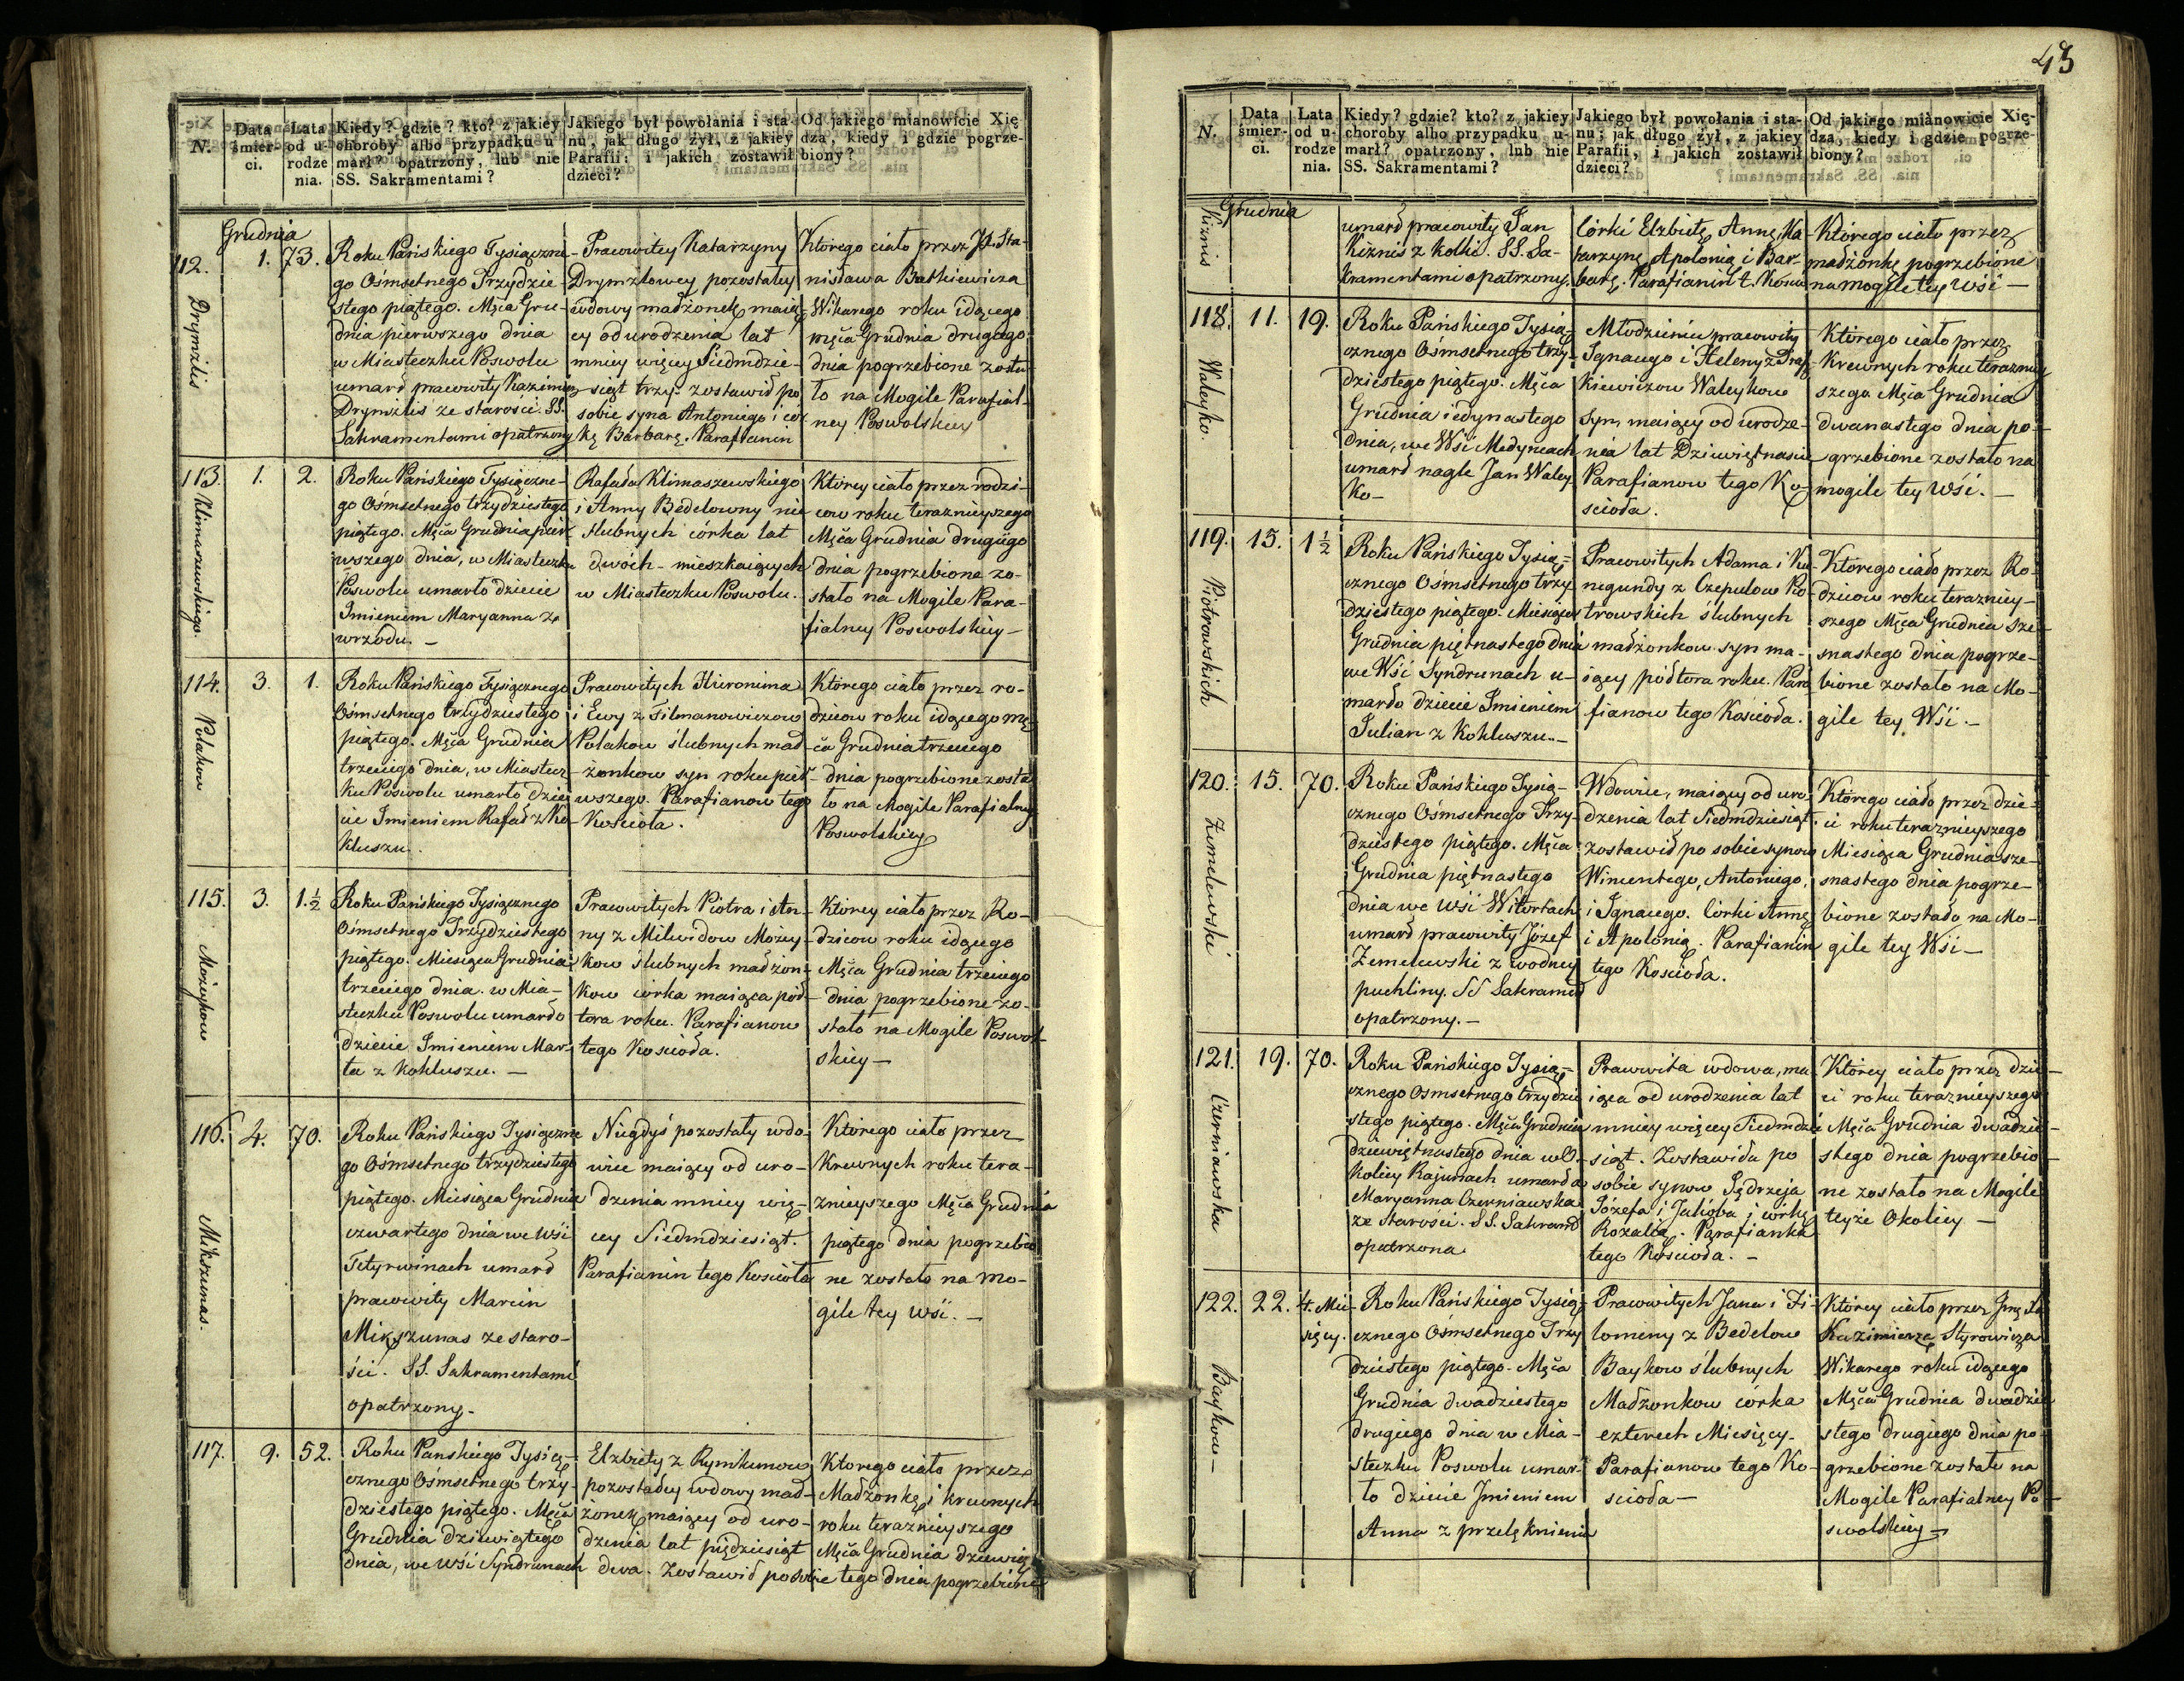 N.
Data śmierci.
Lata od urodzenia.
Kiedy? gdzie? kto? z jakiey choroby albo przypadku umarł? opatrzony, lub nie SS. Sakramentami?
Jakiego był powołania i stanu, jak długo żył, z jakiey Parafii; i jakich zostawił dzieci?
Od jakiego mianowicie Xiędza, kiedy i gdzie pogrzebiony?
Grudnia
112.
1.
73.
Drymzilis
Roku Pańskiego Tysiączne-
go Ośmsetnego Trzydzie
stego piątego. Mśca Gru-
dnia pierwszego dnia
w Miasteczku Poswolu
umarł pracowity Kazimierz
Drymzilis ze starości. SS.
Sakramentami opatrzony
Pracowitey Katarzyny
Drymzilowey pozostałey
wdowy małżonek, maią-
cy od urodzenia lat
mniey więcey Siedmdzie-
siąt trzy. zostawił po
sobie syna Antoniego i cor
kę Barbarę. Parafianin
Którego ciało przez JX. Sta-
nisława Batkiewicza
Wikarego roku idącego
mśca Grudnia drugiego
dnia pogrzebione zosta
ło na Mogile Parafial-
ney Poswolskiey
113.
1.
2.
Klimaszewskiego
Roku Pańskiego Tysiączne-
go Ośmsetnego trzydziestego
piątego. Mśca Grudnia pier
wszego dnia, w Miasteczku
Poswolu umarło dziecie
Imieniem Maryanna z
wrzodu. -
Rafała Klimaszewskiego
i Anny Bedelowny nie
ślubnych córka lat
dwóch - mieszkaiących
w Miasteczku Poswolu.
Którey ciało przez rodzi-
cow roku teraznieyszego
Mśca Grudnia drugiego
dnia pogrzebione zo-
stało na Mogile Para-
fialney Poswolskiey -
114.
3.
1.
Polakow
Roku Pańskiego Tysiącznego
Ośmsetnego trzydziestego
piątego. Mśca Grudnia
trzeciego dnia, w Miastecz
ku Poswolu umarło dzie
cie Imieniem Rafał z Ko
kluszu.
Pracowitych Hieronima
i Ewy z Tilmanowiczow
Polakow ślubnych mał
żonkow syn roku pier
wszego. Parafianow tego
Kościoła.
Którego ciało przez ro-
dzicow roku idącego mś
ca Grudnia trzeciego
dnia pogrzebione zosta
ło na Mogile Parafialney
Poswolskiey
115.
3.
1.½
Mozeykow
Roku Pańskiego Tysiącznego
Ośmsetnego Trzydziestego
piątego. Miesiąca Grudnia
trzeciego dnia. w Mia-
steczku Poswolu umarło
dziecie Imieniem Mar-
ta z kokluszu. -
Pracowitych Piotra i An-
ny z Milwidow Możey
kow ślubnych małżon-
kow córka maiąca pół-
tora roku. Parafianow
tego Kościoła.
Którey ciało przez Ro-
dzicow roku idącego
Mśca Grudnia trzeciego
dnia pogrzebione zo-
stało na Mogile Poswol-
skiey -
116.
4.
70.
Mikszunas.
Roku Pańskiego Tysiączne
go Ośmsetnego trzydziestego
piątego. Miesiąca Grudnia
czwartego dnia we wsi
Tetyrwinach umarł
pracowity Marcin
Mikszunas ze staro-
ści. SS. Sakramentami
opatrzony.
Niegdyś pozostały wdo-
wiec maiący od uro-
dzenia mniey wię-
cey Siedmdziesiąt.
Parafianin tego Kościoła
Którego ciało przez
Krewnych roku tera-
znieyszego Mśca Grudnia
piątego dnia pogrzebio
ne zostało na mo-
gile tey wsi. -
117.
9.
52.
Roku Panskiego Tysią-
cznego Osmsetnego trzy-
dziestego piątego. Mśca
Grudnia dziewiątego
dnia, we wsi Syndrunach
Elzbiety z Rymkunow
pozostałey wdowy mał-
żonek, maiący od uro-
dzenia lat pięćdziesiąt
dwa. Zostawił po sobie
Ktorego ciało przez
Małżonkę i krewnych
roku teraznieyszego
Mśca Grudnia dziewią
tego dnia pogrzebione
43
N.
Data śmierci.
Lata od urodzenia.
Kiedy? gdzie? kto? z jakiey choroby albo przypadku umarł? opatrzony, lub nie SS. Sakramentami?
Jakiego był powołania i stanu; jak długo żył, z jakiey Parafii, i jakich zostawił dzieci?
Od jakiego mianowicie Xiędza, kiedy i gdzie pogrzebiony?
Grudnia
Kiżnis
umarł pracowity Jan
Kiżnis z kolki. SS. Sa-
kramentami opatrzony.
córki Elzbietę, Annę, Ka
tarzynę, Apolonią i Bar-
barę. Parafianin t. Kościo
Którego ciało przez
małżonkę pogrzebione
na mogile tey wsi -
118.
11.
19.
Waleyko.
Roku Pańskiego Tysią-
cznego Ośmsetnego trzy-
dziestego piątego. Mśca
Grudnia iedynastego
dnia, we Wsi Medyneach
umarł nagle Jan Waley
ko -
Młodzieniec pracowity
Ignacego i Heleny z
kiewiczow Waleykow
syn, maiący od urodze-
nia lat Dziewiętnaście
Parafianow tego Ko-
ścioła.
Którego ciało przez
Krewnych roku terazniey
szego Mśca Grudnia
dwanastego dnia po-
grzebione zostało na
mogile tey Wsi. -
119.
15.
1½
Piotrowskich
Roku Pańskiego Tysią-
cznego Ośmsetnego trzy
dziestego piątego. Miesiąca
Grudnia piętnastego dnia
we Wsi Syndrunach u-
marło dziecie Imieniem
Julian z Kokluszu. -
Pracowitych Adama i Ku
negundy z Czepulow Pio
trowskich ślubnych
małżonkow syn ma-
iący półtora roku. Para
fianow tego Kościoła.
Którego ciało przez Ro-
dzicow roku terazniey-
szego Mśca Grudnia sze-
snastego dnia pogrze-
bione zostało na Mo-
gile tey Wsi. -
120.
15.
70.
Zemelewski
Roku Pańskiego Tysią-
cznego Ośmsetnego Trzy-
dziestego piątego. Mśca
Grudnia piętnastego
dnia we wsi Witortach
umarł pracowity Józef
Zemelewski z wodney
puchliny. SS Sakrament
opatrzony. -
Wdowiec, maiący od uro
dzenia lat Siedmdziesiąt.
zostawił po sobie synow
Wincentego, Antoniego,
i Ignacego. Córki Annę
i Apolonią. Parafianin
tego Kościoła.
Którego ciało przez dzie-
ci roku teraznieyszego
Miesiąca Grudnia sze-
snastego dnia pogrze-
bione zostało na Mo-
gile tey Wsi -
121.
19.
70.
Czerniawska
Roku Pańskiego Tysią-
cznego Osmsetnego trzydzie
stego piątego. Mśca Grudnia
dziewiętnastego dnia w O-
kolicy Rajunach umarła
Maryanna Czerniawska
ze starości. SS. Sakrament
opatrzona
Pracowita wdowa, ma
iąca od urodzenia lat
mniey więcey Siedmdzie
siąt. Zostawiła po
sobie synow Jędrzeja
Józefa i Jakóba i córkę
Rozalią. Parafianka
tego Kościoła. -
Którey ciało przez dzie-
ci roku teraznieyszego
Mśca Grudnia dwadzie-
stego dnia pogrzebio-
ne zostało na Mogile
teyże Okolicy -
122.
22.
4. Mie-
sięcy.
Baykow -
Roku Pańskiego Tysią-
cznego Ośmsetnego Trzy
dziestego piątego. Mśca
Grudnia dwadziestego
drugiego dnia w Mia-
steczku Poswolu umar-
ło dziecie Imieniem
Anna z przelęknienia
Pracowitych Jana i Fi
lomeny z Bedelow
Baykow ślubnych
Małżonkow córka
czterech Miesięcy.
Parafianow tego Ko-
ścioła -
Którey ciało przez
Kazimierza Styrowicza
Wikarego roku idącego
Mśca Grudnia dwadzie
stego drugiego dnia po-
grzebione zostało na
Mogile Parafialney Po-
swolskiey -